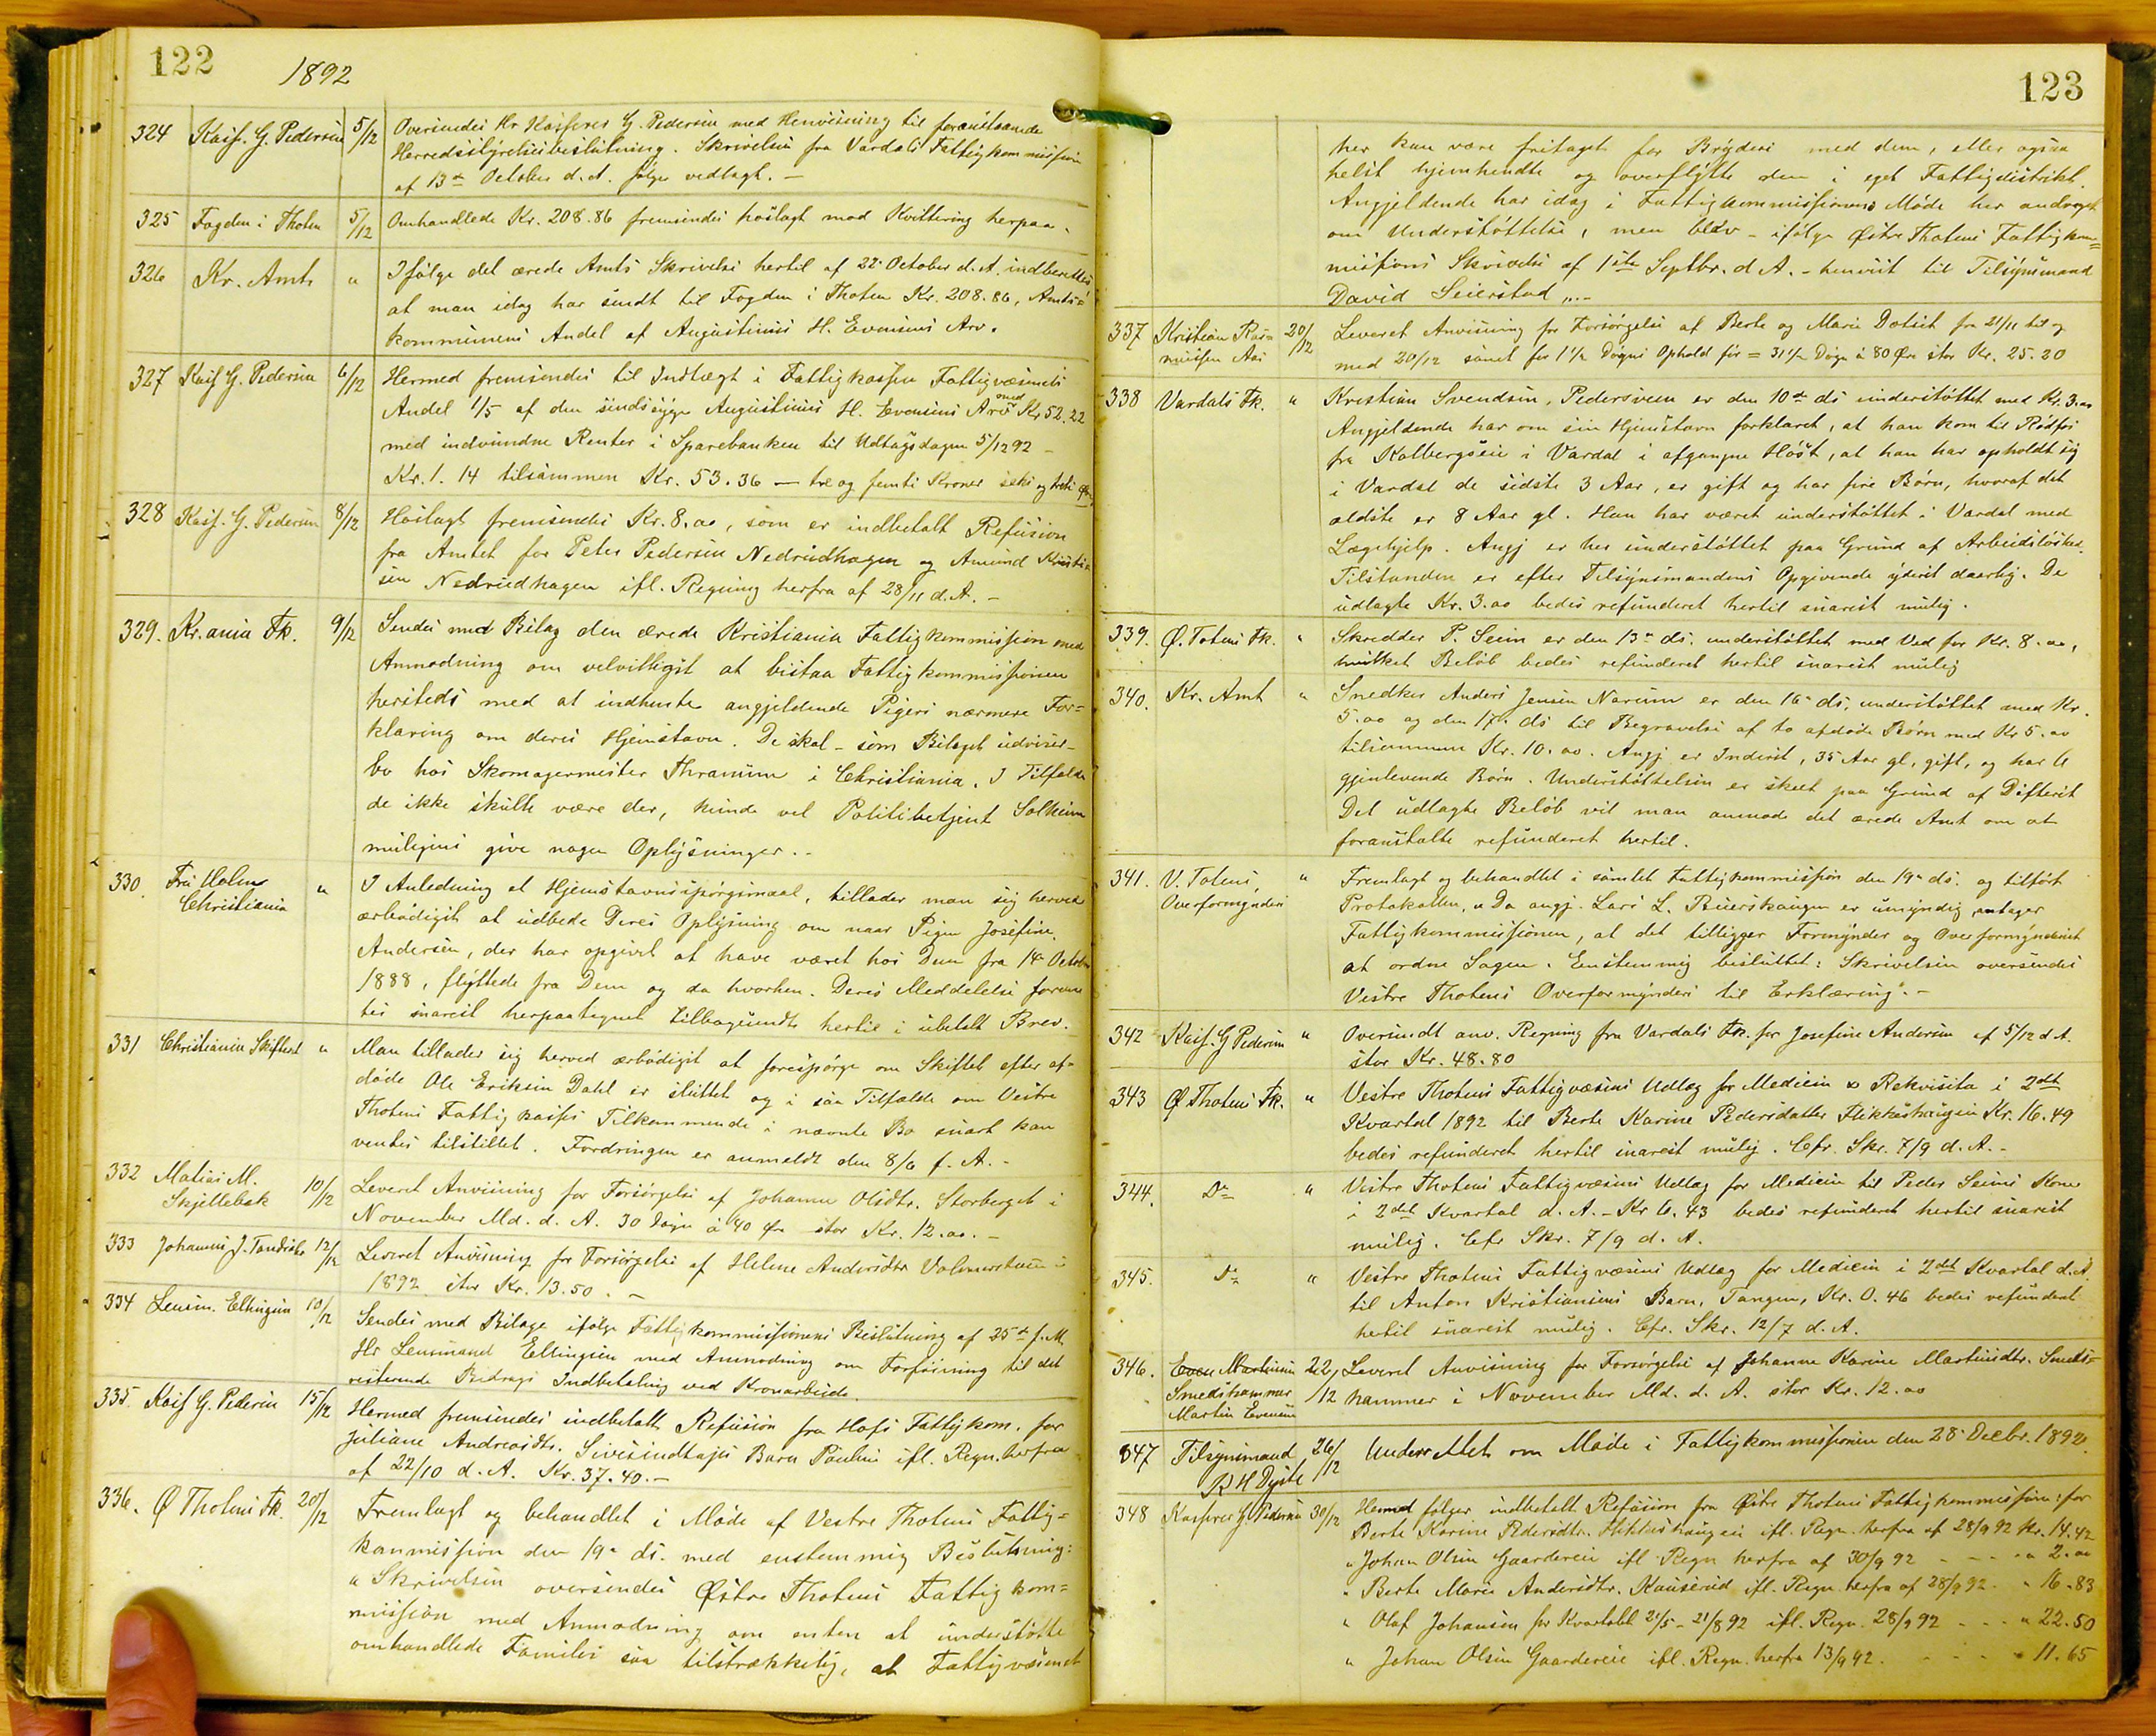 122
1892
324 Kass. G. Pedersen 5/12 Oversendes Hr Kasserer G. Pedersen med Henvisning til foranstaaende
Herredsstyrelsesbeslutning. Skrivelsen fra Vardals Fattigkommission
af 13de October d.A. følger vedlagt. —
325 Fogden i Thoten 5/12 Omhandlede Kr. 208.86 fremsendes hoslagt mod Kvittering herpaa.
326 Kr. Amt " Ifølge det ærede Amts Skrivelse hertil af 22' October d.A. indberettes
at man idag har sendt til Fogden i Thoten Kr. 208.86, Amts=
kommunens Andel af Augustinus H. Evensens Arv.
327 Kass G. Pedersen 6/12 Hermed fremsendes til Indtægt i Fattigkassen Fattigvæsenets
Andel 1/5 af den sindssyge Augustinus H. Evensens Arv med Kr 52.22
med indvundne Renter i Sparebanken til Udtagsdagen 5/12 92 –
Kr. 1.14 tilsammen Kr. 53.36 — tre og femti Kroner seks og treti Øre
328 Kass. G. Pedersen 8/12 Hoslagt fremsendes Kr. 8.oo, som er indbetalt Refusion
fra Amtet for Peter Pedersen Nedrudhagen og Amund Kristian
sen Nedrudhagen ifl. Regning herfra af 28/11 d.A. –
329. Kr.ania Fk. 9/12 Sendes med Bilag den ærede Kristiania Fattigkommission med
Anmodning om velvilligst at bistaa Fattigkommissionen
hersteds med at indhente angjeldende Pigers nærmere For=
klaring om deres Hjemstavn. De skal – som Bilaget udviser –
bo hos Skomagermester Thranum i Christiania. I Tilfælde
de ikke skulle være der, kunde vel Politibetjent Solheim
muligens give nogen Oplysninger. –
330. Fru Holm Christiania " I Anledning et Hjemstavnsspørgsmaal, tillader man sig herved
ærbødigst at udbede Deres Oplysning om naar Pigen Josefine
Andersen, der har opgivet at have været hos Dem fra 14de October
1888, flyttede fra Dem og da hvorhen. Deres Meddelelse forven
tes snarest herpaategnet tilbagesendt hertil i ubetalt Brev.
331 Christiania Skifteret " Man tillader sig herved ærbødigst at forespørge om Skiftet efter af-
døde Ole Eriksen Dahl er sluttet og i saa Tilfælde om Vestre
Thotens Fattigkasses Tilkommende i nævnte Bo snart kan
ventes tilstillet. Fordringen er anmeldt den 8/6 f. A. –
332 Matias M. Skjellebek 10/12 Leveret Anvisning for Forsørgelse af Johanne Olsdtr. Storberget i
November Md. d. A. 30 Døgn à 40 Øre stor Kr. 12.oo. –
333 Johannes J. 12/12 Leveret Anvisning for Forsørgelse af Helene Andersdtr i
1892 stor Kr. 13.50. –
334 Lensm. Ellingsen 10/12 Sendes med Bilage ifølge Fattigkommissionens Beslutning af 25de f.M.
Hr Lensmand Ellingsen med Anmodning om Forføining til det
resterende Bidrags Indbetaling ved Kronarbeide.
335 Kass G. Pedersen 15/12 Hermed fremsendes indbetalt Refusion fra Hofs Fattigkom. for
Juliane Andreasdtr. Sivesindtajes Barn Pauline ifl. Regn. herfra
af 22/10 d.A. Kr. 37.40. –
336. Ø Thotens Fk. 20/12 Fremlagt og behandlet i Møde af Vestre Thotens Fattig=
kommission den 19de ds. med enstemmig Beslutning:
"Skrivelsen oversendes Østre Thotens Fattigkom=
mission med Anmodning om enten at understøtte
omhandlede Familie saa tilstrækkelig, at Fattigvæsenet
123
her kan være fritaget for Bryderi med dem, eller ogsaa
helst hjemhendte og overflytte dem i eget Fattigdistrikt.
Angjeldende har idag i Fattigkommissionens Møde her andraget
om Understøttelse, men blev – ifølge Østre Thotens Fattigkom=
missions Skrivelse af 1ste Septbr. d A. – henvist til Tilsynsmand
David Seierstad". –
337 Kristian Ras= mussen Aas 20/12 Leveret Anvisning for Forsørgelse af Berte og Marie Dotset fra 21/11 til og
med 20/12 samt for 1 1/2 Døgns Ophold før = 31 1/2 Døgn à 80 Øre stor Kr. 25.20
338 Vardals Fk. " Kristian Svendsen, Pedersveen er den 10de ds understøttet med Kr. 3.oo
Angjeldende har om sin Hjemstavn forklaret, at han kom til Rødfos
fra Kolbergseie i Vardal i afgangne Høst, at han har opholdt sig
i Vardal de sidste 3 Aar, er gift og har fire Børn, hvoraf det
ældste er 8 Aar gl. Han har været understøttet i Vardal med
Lægehjelp. Angj er her understøttet paa Grund af Arbeidsløshed.
Tilstanden er efter Tilsynsmandens Opgivende yderst daarlig. De
udlagte Kr. 3.oo bedes refunderet hertil snarest mulig.
339. Ø. Totens Fk. " Skredder P. Seim er den 13de ds. understøttet med Ved for Kr. 8.oo,
hvilket Beløb bedes refunderet hertil snarest mulig
340. Kr. Amt " Snedker Anders Jensen Narum er den 16de ds. understøttet med Kr.
5.oo og den 17de ds til Begravelse af to afdøde Børn med Kr 5.oo
tilsammen Kr. 10.oo. Angj er Inderst, 35 Aar gl, gift, og har 6
gjenlevende Børn. Understøttelsen er skeet paa Grund af Difterit
Det udlagte Beløb vil man anmode det ærede Amt om at
foranstalte refunderet hertil.
341. V. Totens, Overformynderi " Fremlagt og behandlet i samlet Fattigkommission den 19de ds. og tilført
Protokollen, "Da angj. Lars L. er umyndig, antager
Fattigkommissionen, at det tilligger Formynder og Overformynderiet
at ordne Sagen. Enstemmig besluttet: Skrivelsen oversendes
Vestre Thotens Overformynderi til Erklæring". –
342 Kass. G Pedersen " Oversendt anv. Regning fra Vardals Fk. for Josefine Andersen af 5/12 d A.
stor Kr. 48.80
343 Ø Thotens Fk. " Vestre Thotens Fattigvæsens Udlæg for Medicin & Rekvisita i 2det
Kvartal 1892 til Berte Karine Pedersdatter Flikkeshaugen Kr. 16.49
bedes refunderet hertil snarest mulig. Cfr. Skr. 7/9 d. A. –
344. Do " Vestre Thotens Fattigvæsens Udlæg for Medicin til Peder Seims Kone
i 2det Kvartal d. A. – Kr 6.43 bedes refunderet hertil snarest
mulig. Cfr Skr. 7/9 d. A.
345. Do " Vestre Thotens Fattigvæsens Udlæg for Medicin i 2det Kvartal d.A.
til Anton Kristiansens Barn, Tangen, Kr. 0.46 bedes refunderet
hertil snarest mulig. Cfr. Skr. 12/7 d. A.
346. Even Martinsen Smedshammer Martin Evensen 22/12 Leveret Anvisning for Forsørgelse af Johanne Karine Martinsdtr. Smeds=
hammer i November Md. d. A. stor Kr. 12.oo
347 Tilsynsmand 26/12 Underrettet om Møde i Fattigkommissionen den 28' Decbr. 1892.
348 Kasserer G. Pedersen 30/12 Hermed følger indbetalt Refusion fra Østre Thotens Fattigkommission: for
Berte Karine Pedersdtr. Flikkeshaugen ifl. Regn. herfra af 28/9 92 Kr. 14.42
" Johan Olsen Gaardereie ifl Regn herfra af 30/9 92 – – – " 2.oo
" Berte Marie Andersdtr. Kauserud ifl. Regn. herfra af 28/9 92. " 16.83
" Olaf Johansen for Kvartalet 21/5 – 21/8 92 ifl. Regn. 28/9 92 – – – " 22.50
" Johan Olsen Gaardereie ifl. Regn. herfra 13/9 92. – – – " 11.65